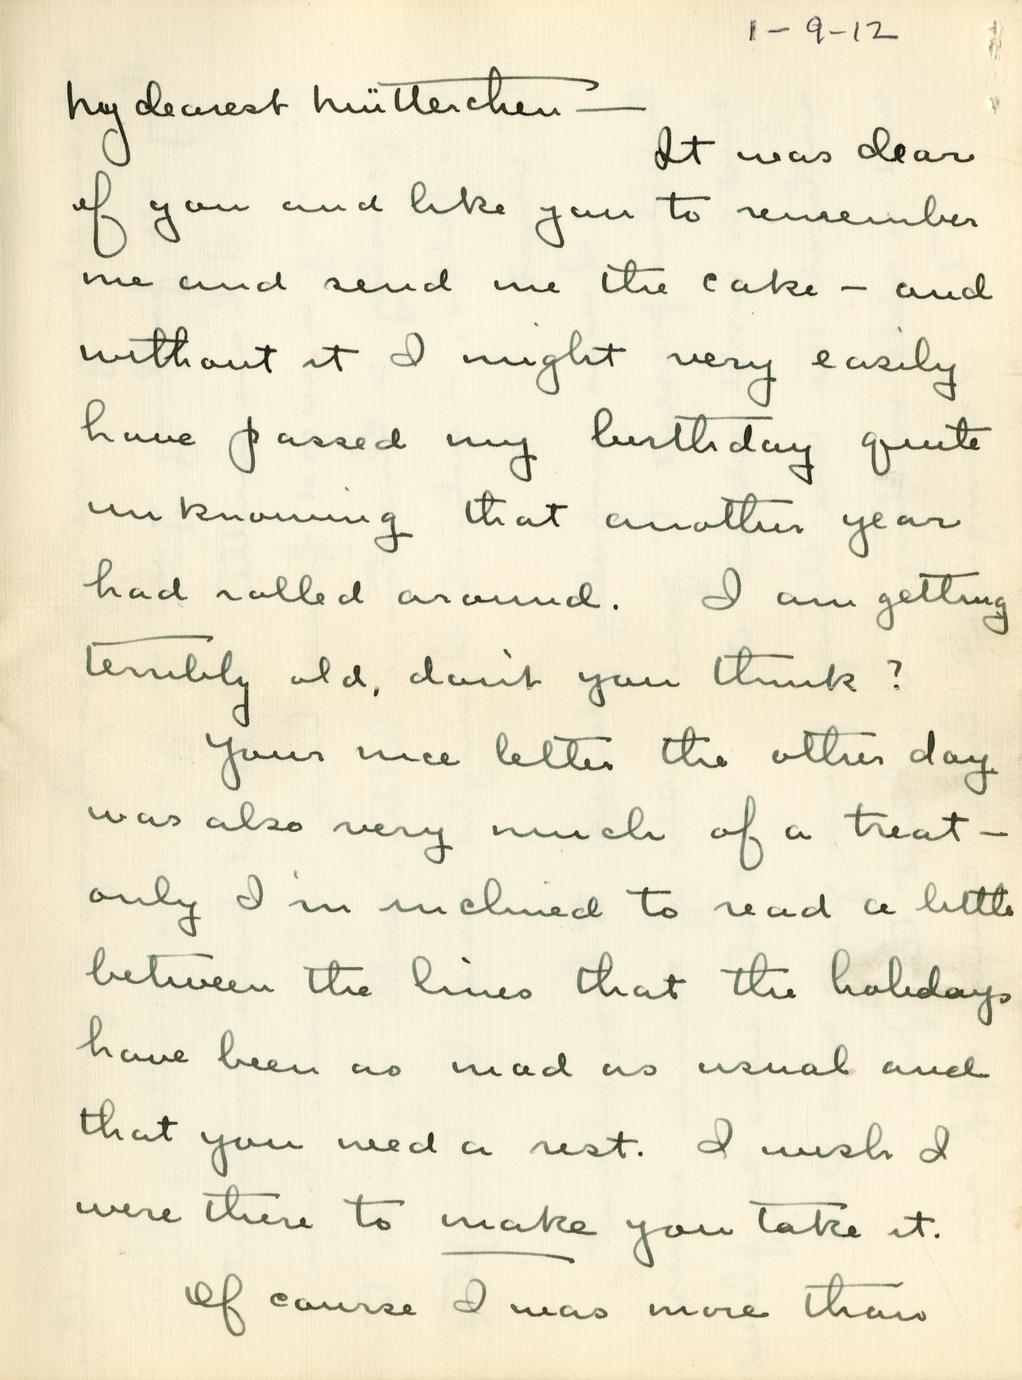 1-9-12
My dearest Mütterchen —
It was dear
of you and like you to remember
me and send me the cake – and
without it I might very easily
have passed my birthday quite
unknowing that another year
had rolled around. I am getting
terribly old, don't you think?
Your nice letter the other day
was also very much of a treat –
only I'm inclined to read a little
between the lines that the holidays
have been as mad as usual and
that you need a rest. I wish I
were there to make you take it.
Of course I was more than